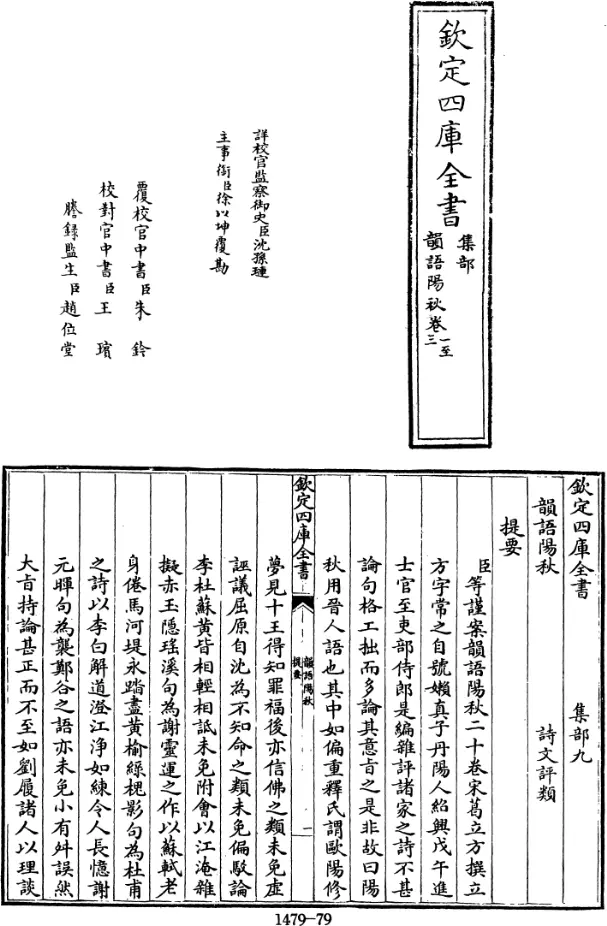 欽定四庫全書
集部
韻語陽秋卷一至三
詳校官監察御史臣沈孫璉
主事銜臣徐以坤覆勘
覆校官中書臣朱鈐
校對官中書臣王璸
謄錄監生臣趙位堂
欽定四庫全書
集部九
韻語陽秋
詩文評類
提要
臣等謹案韻語陽秋二十卷宋葛立方撰立
方字常之自號嬾真子丹陽人紹興戊午進
士官至吏部侍郎是編雜評諸家之詩不甚
論句格工拙而多論其意旨之是非故曰陽
秋用晉人語也其中如偏重釋氏謂歐陽修
欽定四庫全書
韻語陽秋
提要
一
夢見十王得知罪福後亦信佛之類未免虛
誣議屈原自沈為不知命之類未免偏駮論
李杜蘇黃皆相輕相詆未免附會以江淹雜
擬赤玉隱瑤溪句為謝靈運之作以蘇軾老
身倦馬河堤永踏盡黃榆綠槐影句為杜甫
之詩以李白解道澄江淨如練令人長憶謝
元暉句為襲鄭谷之語亦未免小有舛誤然
大旨持論甚正而不至如劉履諸人以理談
1479-79